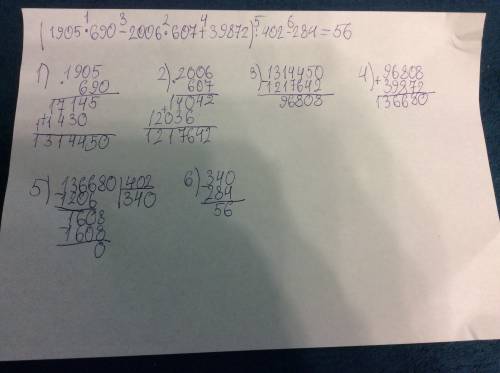 (1905·690-2006·607+39872):402-284=56
1 3 2 4 5 6
1) 1905
690
17145
11430
1314450
2) 2006
607
14042
12036
1217642
3) 1314450
1217642
96808
4) 96808
39872
136680
5) 136680 402
1206 340
1608
1608
0
6) 340
284
56